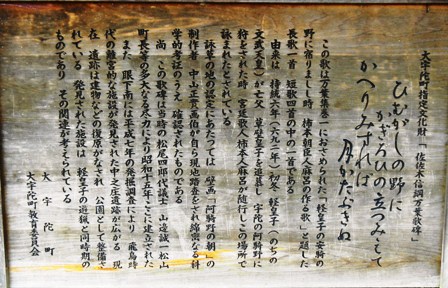 大宇陀町指定文化財「佐佐木信綱万葉歌碑」
ひむがしの野に
かぎろひの立つみえて
かへりみすれば
月かたぶきぬ
この歌は万葉集巻一におさめられた「軽皇子の安騎の
野に宿りましし時 柿本朝臣人麻呂の作る歌」と題した
長歌一首 短歌四首の中の一首である
由来は 持統六年(六九二年)初冬 軽皇子(のちの
文武天皇)が亡父 草壁皇子を追慕し 宇陀の阿騎野に
狩をされた時 宮廷歌人柿本人麻呂が随行しこの場所で
詠まれたとされている
詠草の地の認定にあたっては 壁画「阿騎野の朝」の
制作者 中山正實画伯が自ら現地踏査をされ綿密なる科
学的考証のうえ 確認されたものである
尚 この歌碑は当時の松尾四郎代議士 山邊誠一松山
町長等の多大なる尽力により昭和十五年ここに建立された
また 眼下には平成七年の発掘調査により 飛鳥時
代の離宮的な施設が発見された中之庄遺跡が広がる 現
在 遺跡は建物などの復原がなされ 公園として整備さ
れている 発見された施設は 軽皇子の遊猟と同時期の
ものであり その関連が考えられている
大宇陀町
大宇陀町教育委員会